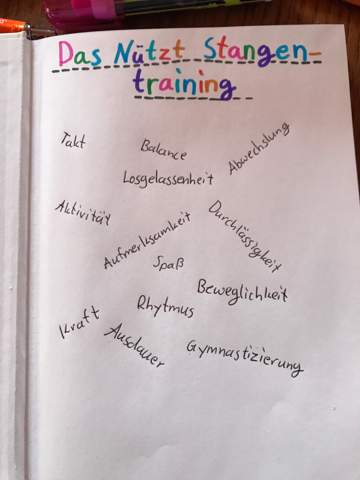 Das Nützt Stangen-
training
Takt
Balance
Abwechslung
Losgelassenheit
Aktivität
Aufmerksamkeit
Durchlässigkeit
Spaß
Beweglichkeit
Rhytmus
Kraft
Ausdauer
Gymnastizierung